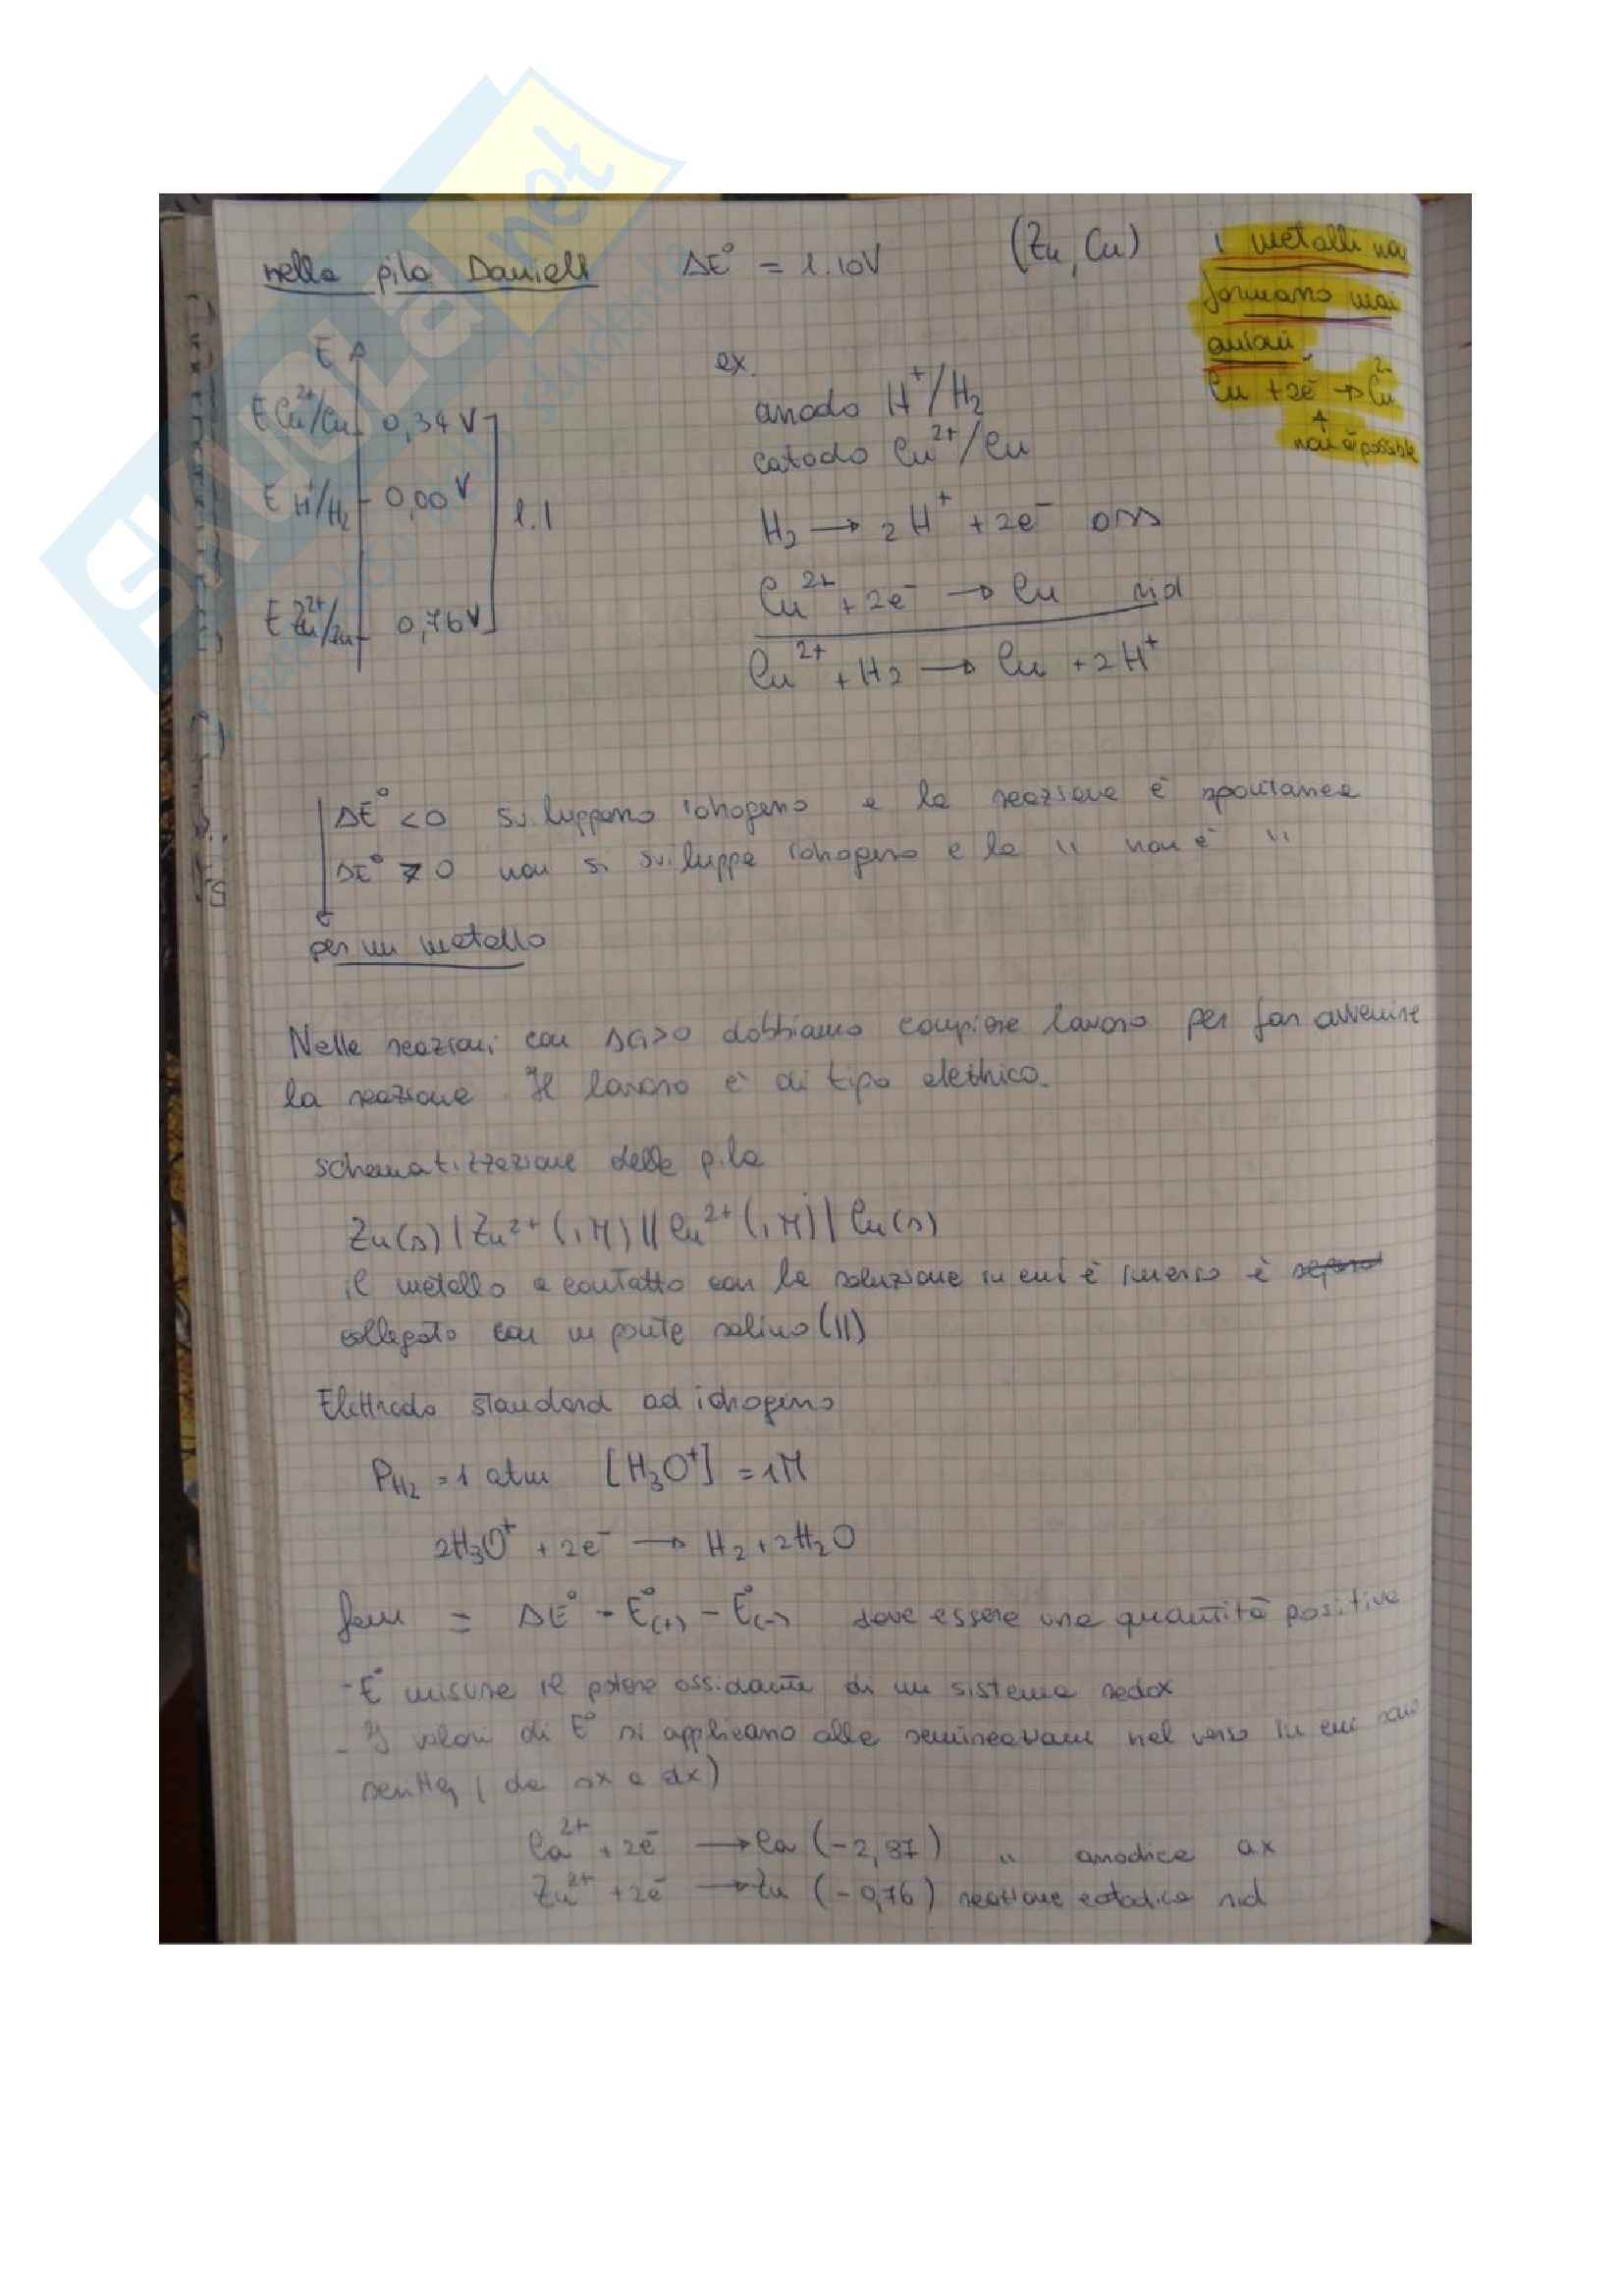 SKUOLA.net
nella pila Daniell ΔE° = 1.10V (Zn, Cu)
i metalli non
formano mai
anioni
Cu + 2e⁻ → Cu²⁻
↑
non è possibile
E
E Cu²⁺/Cu 0,34 V
E H⁺/H₂ 0,00 V
1.1
E Zn²⁺/Zn 0,76 V
ex.
anodo H⁺/H₂
catodo Cu²⁺/Cu
H₂ → 2H⁺ + 2e⁻ oss
Cu²⁺ + 2e⁻ → Cu rid
Cu²⁺ + H₂ → Cu + 2H⁺
ΔE° < 0 sviluppano idrogeno e la reazione è spontanea
ΔE° > 0 non si sviluppa idrogeno e la " non è "
per un metallo
Nelle reazioni con ΔG>0 dobbiamo compiere lavoro per far avvenire
la reazione Il lavoro è di tipo elettrico.
schematizzazione della pila
Zn(s) | Zn²⁺ (1M) || Cu²⁺ (1M) | Cu(s)
il metallo a contatto con la soluzione in cui è immerso è
collegato con un ponte salino (||)
Elettrodo standard ad idrogeno
P_H₂ = 1 atm [H₃O⁺] = 1M
2H₃O⁺ + 2e⁻ → H₂ + 2H₂O
fem = ΔE° = E°(+) - E°(-) deve essere una quantità positiva
- E° misura il potere ossidante di un sistema redox
- I valori di E° si applicano alle semireazioni nel verso in cui sono
scritte, (da sx a dx)
Ca²⁺ + 2e⁻ → Ca (-2,87) " anodica ox
Zn²⁺ + 2e⁻ → Zn (-0,76) reazione catodica rid